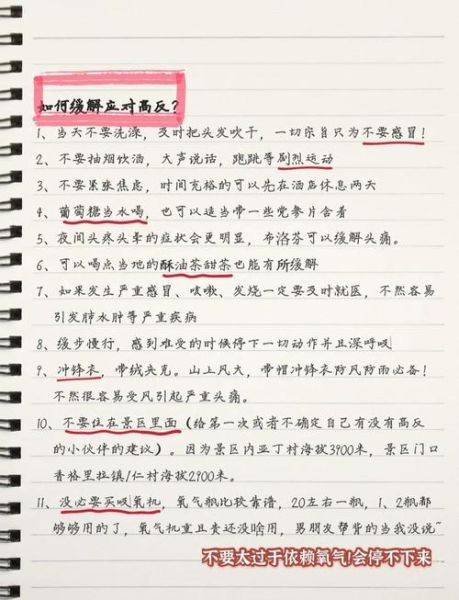 如何缓解应对高反？
1、当天不要洗澡，及时把头发吹干，一切宗旨只为不要感冒！
2、不要抽烟饮酒，大声说话，跑跳等剧烈运动
3、不要紧张焦虑，时间充裕的可以先在酒店休息两天
4、葡萄糖当水喝，也可以适当带一些党参片含着
5、夜间头疼头晕的症状会更明显，布洛芬可以缓解头痛。
6、可以喝点当地的酥油茶甜茶也能有所缓解
7、如果发生严重感冒、咳嗽、发烧一定要及时就医，不然容易
引发肺水肿等严重疾病
8、缓步慢行，感到难受的时候停下一切动作并且深呼吸
9、冲锋衣，带绒夹克。山上风大，带帽冲锋衣防风防雨必备！
不然很容易受风引起严重头痛。
10、不要住在景区里面（给第一次或者不确定自己有没有高反
的小伙伴的建议）。因为景区内亚丁村海拔3900米，景区门口
香格里拉镇/仁村海拔2900米。
11、没必要买吸氧机，氧气瓶比较靠谱，20左右一瓶，1、2瓶都
够够用的了，氧气机重且贵还没啥用，男朋友帮背的当我没说~
不要太过于依赖氧气!会停不下来